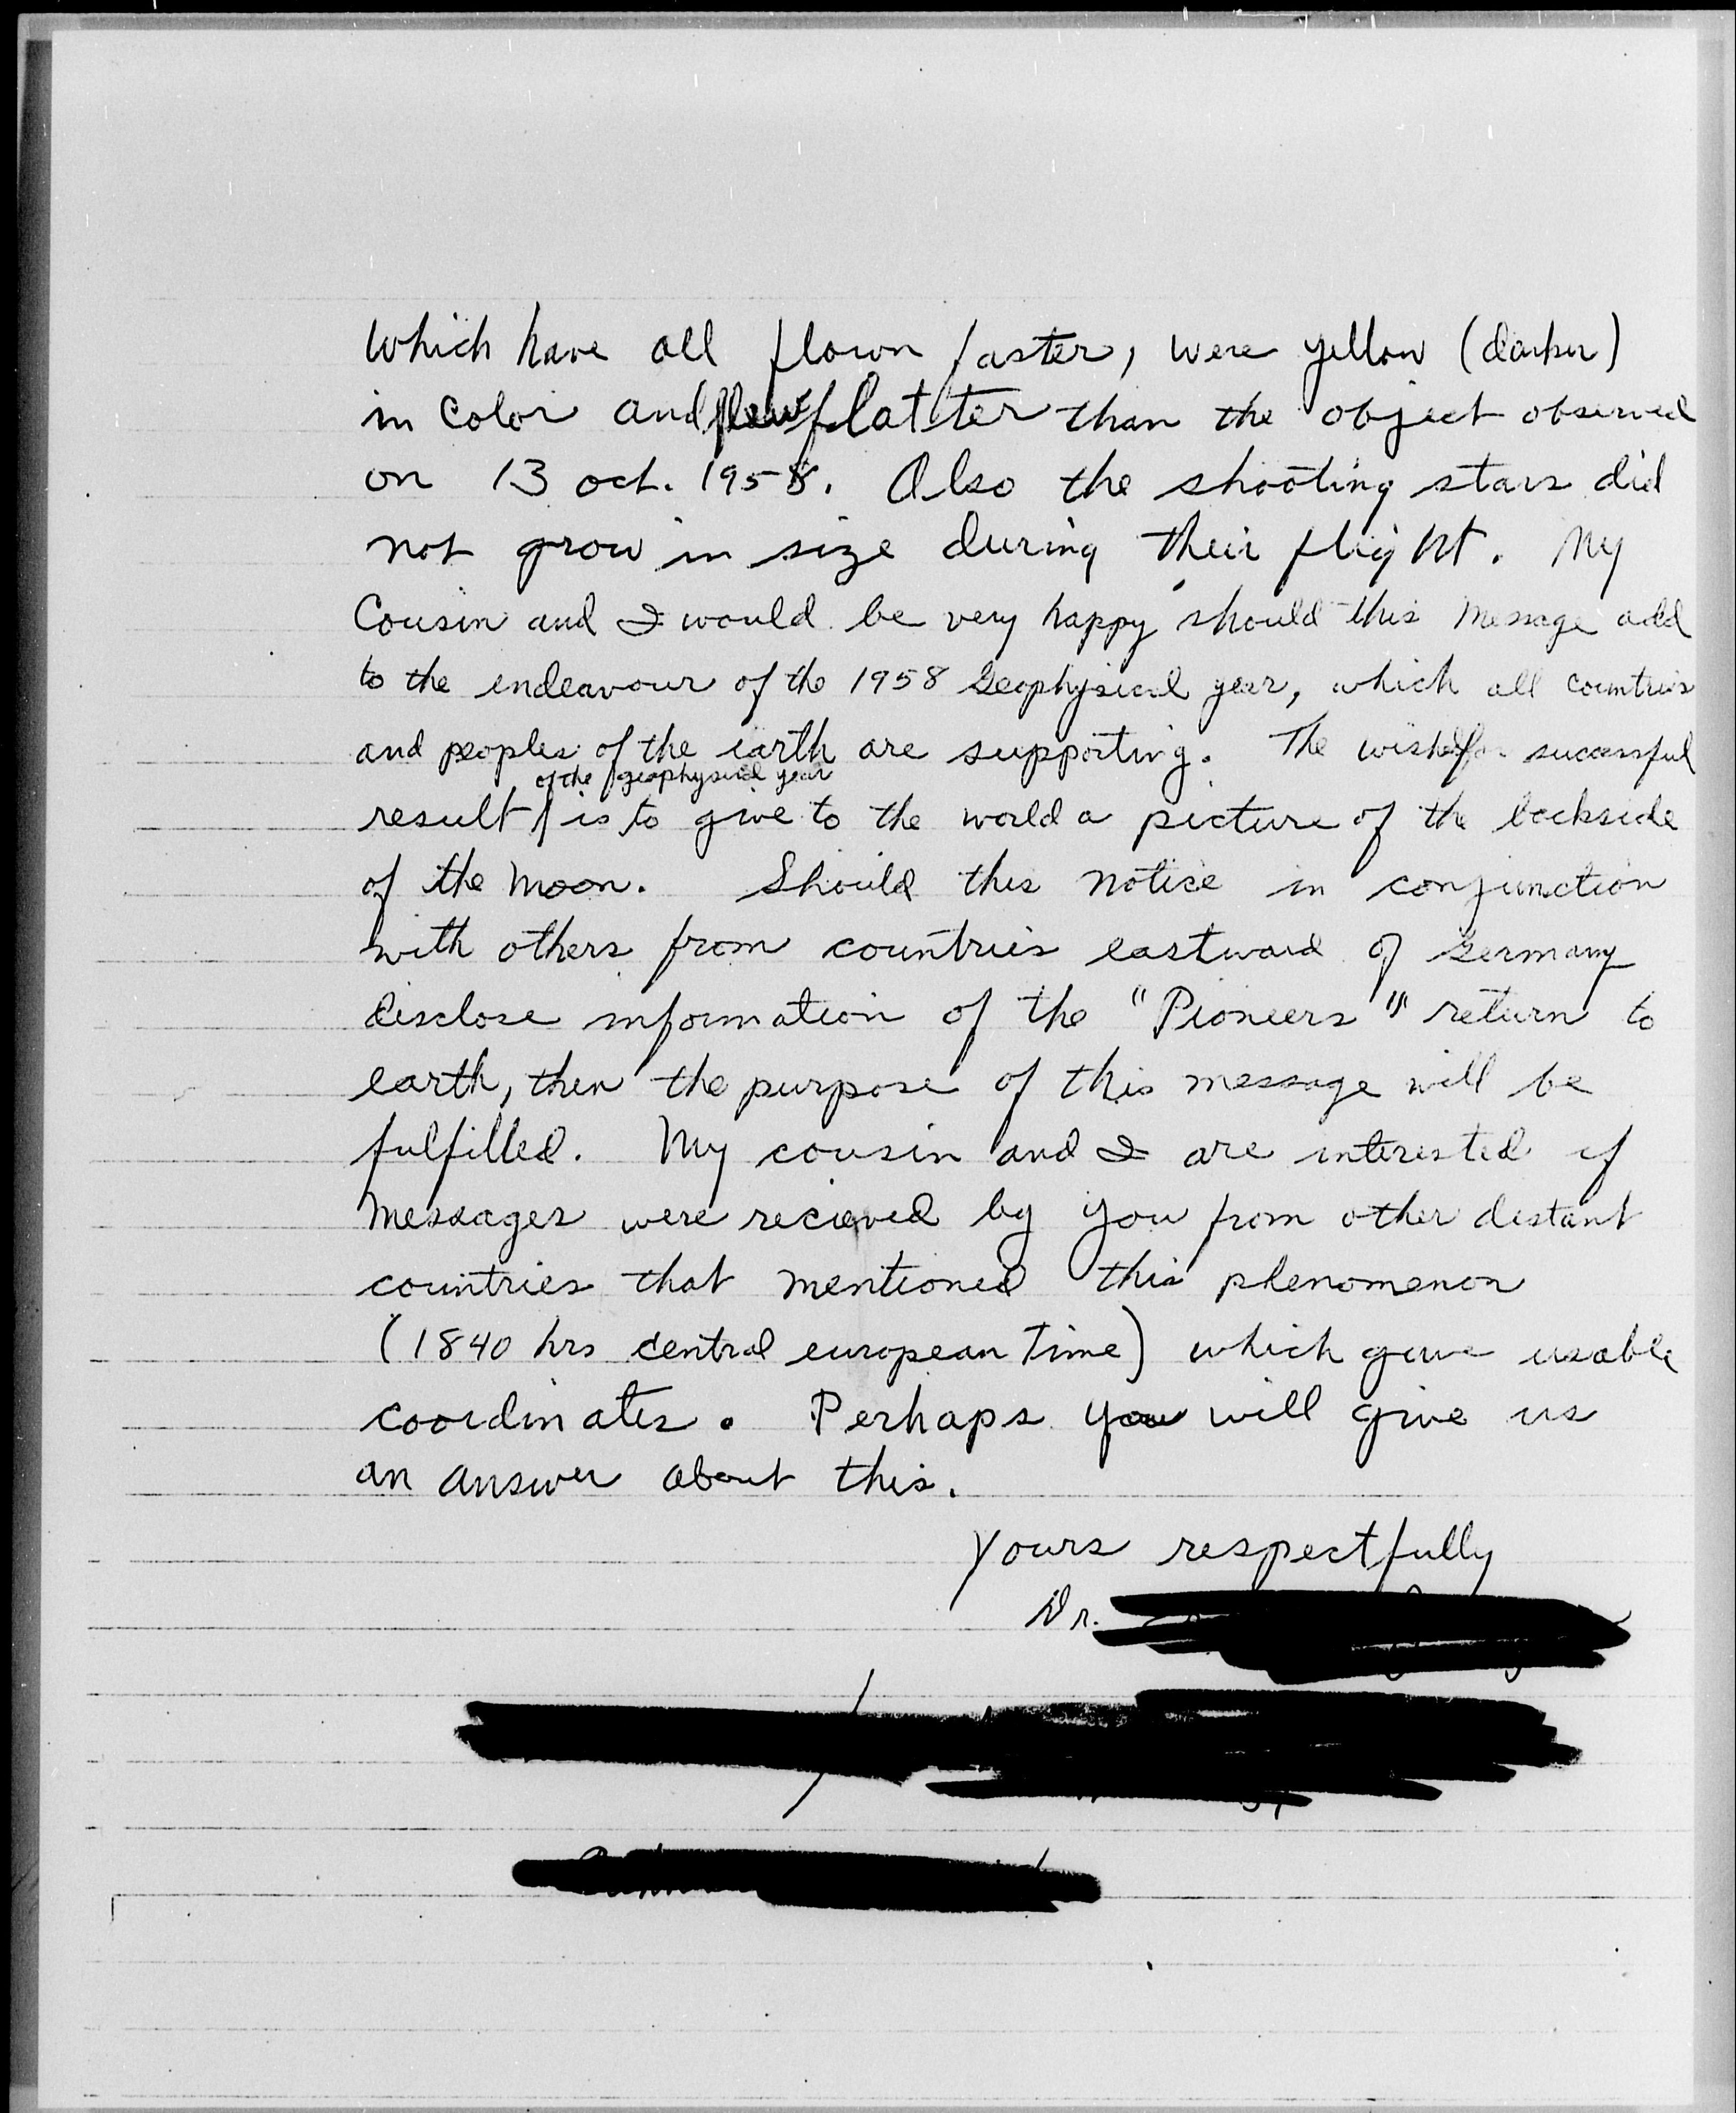 which have all flown faster, were yellow (darker)
in color and flew flatter than the object observed
on 13 oct. 1958. Also the shooting stars did
not grow in size during their flight. My
Cousin and I would be very happy should this message add
to the endeavour of the 1958 Geophysical year, which all countries
and peoples of the earth are supporting. The wished for successful
of the geophysical year
result is to give to the world a picture of the backside
of the moon. Should this notice in conjunction
with others from countries eastward of Germany
disclose information of the "Pioneers" return to
earth, then the purpose of this message will be
fulfilled. My cousin and I are interested if
messages were recieved by you from other distant
countries that mentioned this phenomenon
(1840 hrs central european time) which gave usable
coordinates. Perhaps you will give us
an answer about this.
Yours respectfully
Dr.